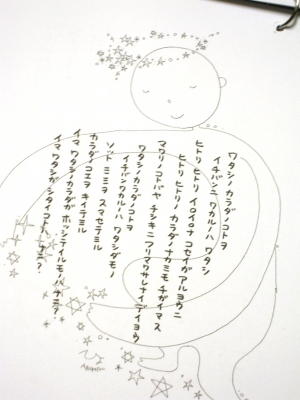 ワタシノカラダノコトヲ
イチバンニワカルノハワタシ
ヒトリヒトリイロイロナコセイガアルヨウニ
ヒトリヒトリノカラダノナカミモチガイマス
マワリノコトバヤチシキニフリマワサレナイデイイヨウ
ワタシノカラダノコトヲ
イチバンワカルノハワタシダモノ
ソットミミヲスマセテミル
カラダノコエヲキイテミル
イマワタシノカラダガホッシテイルモノハナニ?
イマワタシガシタイコトハナニ?